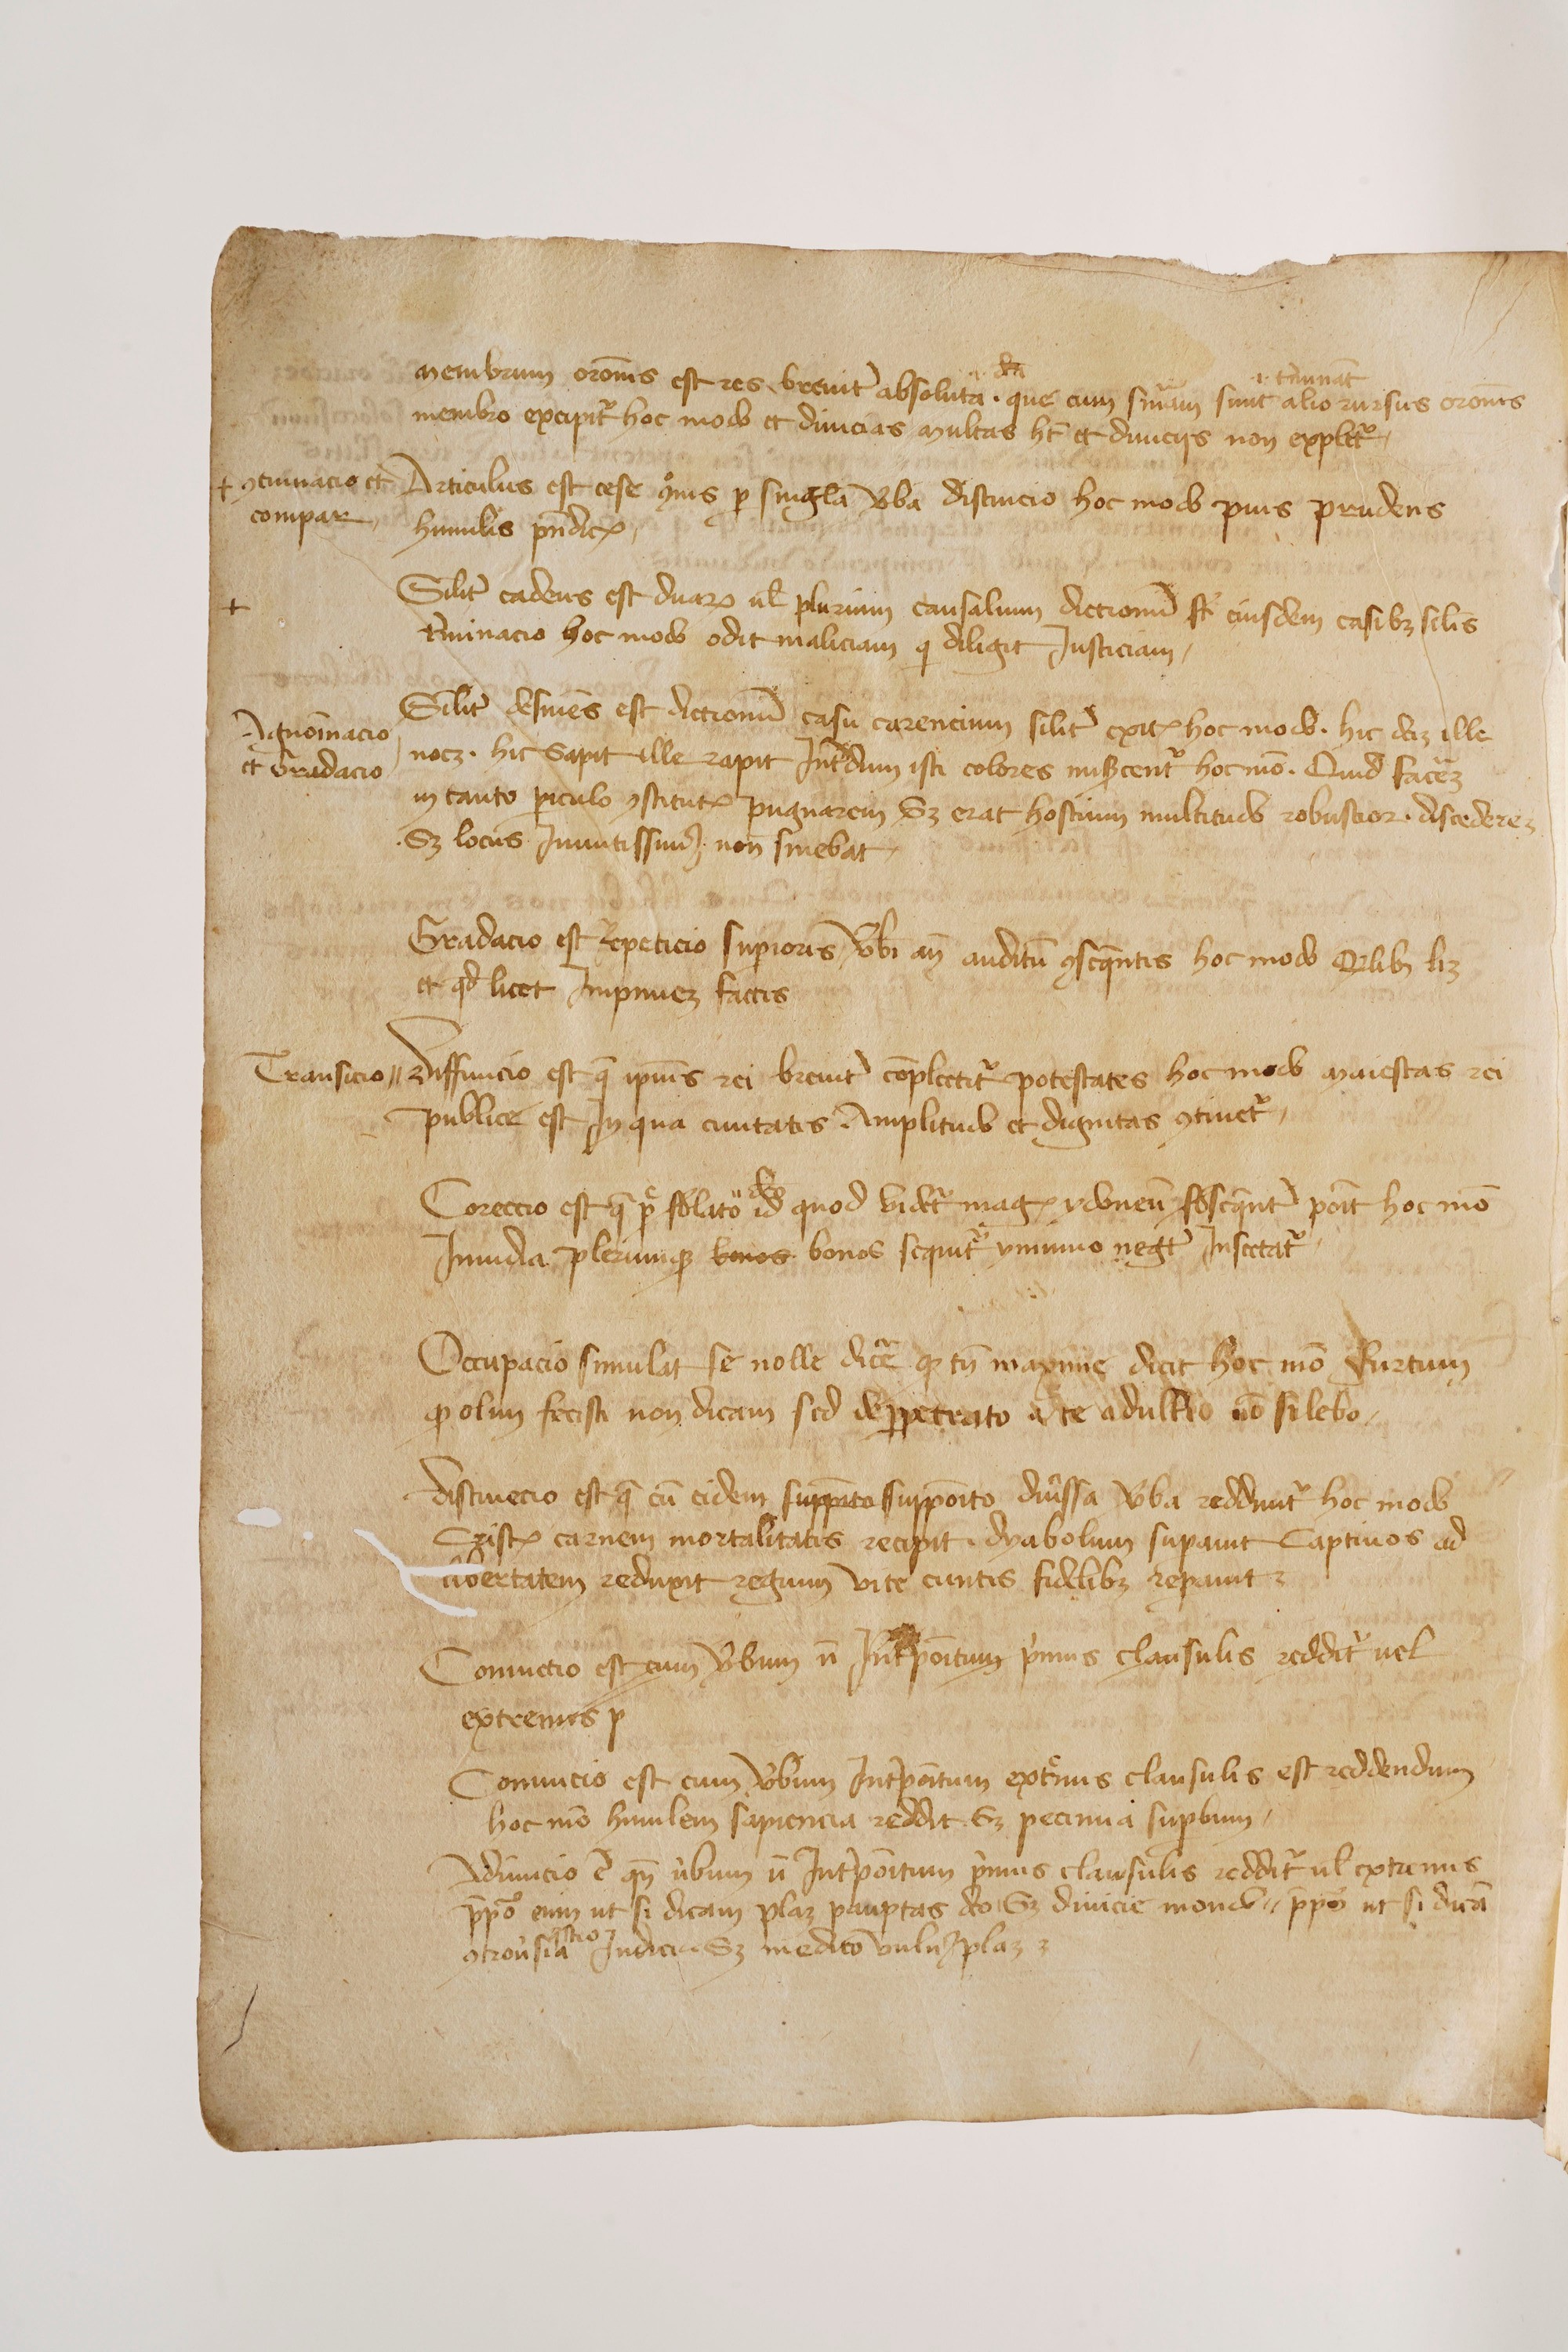 membrum oronis est res breuit absoluta · que cum sniam sunt alio rursus oronis
membro excipit hoc modo et diuicias multas ht et diuicijs non explet
Articulus est cese ꝯnis p singla vba distincio hoc modo pius prudens
humilis
ꝯtinuacio et
compar
Silit cadens est duaꝝ ul plurium causalium dictionu eiusdem casibꝫ silis
tminacio hoc modo odit maliciam qi diligit Justiciam
Silit desinens est dictionu casu carencium silit exitꝰ hoc modo · hic dꝫ ille
nocꝫ · hic sapit ille rapit Intdum isti colores miscent hoc mo · Quid facꝫ
in tanto piculo ꝯstitutꝰ pugnarem Sꝫ erat hostium multitudo robustior · discederem
Sꝫ locus non sinebat
Agnoinacio
et Gradacio
Gradacio est Repeticio supioris vbi an auditu ꝯsequentis hoc modo Qlibꝫ lꝫ
et qd licet Impinuꝫ factis
Transicio // Diffinicio est q ipius rei breuit coplectit potestates hoc modo maiestas rei
publice est In qua ciuitatis Amplitudo et dignitas ꝯtinet
Coreccio est q p sblato id quod videt magꝭ ydoneu sbsequent poit hoc mo
Inuidia plerumqꝫ bonos bonos sequit ymmo negt Insectat
Occupacio simulat se nolle dice qꝫ tn maxime dicit hoc mo Furtum
qꝫ olim fecisti non dicam sed de ꝑpetrato a te adultio no silebo
Distinccio est q cu eidem suppoito suppoito diuissa vba reddunt hoc modo
Cristꝰ carnem mortalitatis recipit · dyabolum supauit Captiuos ad
libertatem reduxit regnum vite cuntis fidelibꝫ repauit
Coniuctio est cum vbum n Intpoitum pimis clausulis reddit uel
extremis p
Coniuctio est cum vbum Intpoitum extmis clausulis est reddendum
hoc mo humilem sapiencia reddit Sꝫ pecunia supbum
Adiuncio e qn vbum n Intpoitum pimis clausulis reddit ul extremis
enim ut si dicam plaꝫ pauptas deo Sꝫ diuicie mondo // ut si dica
ꝯtrousia Sꝫ medico